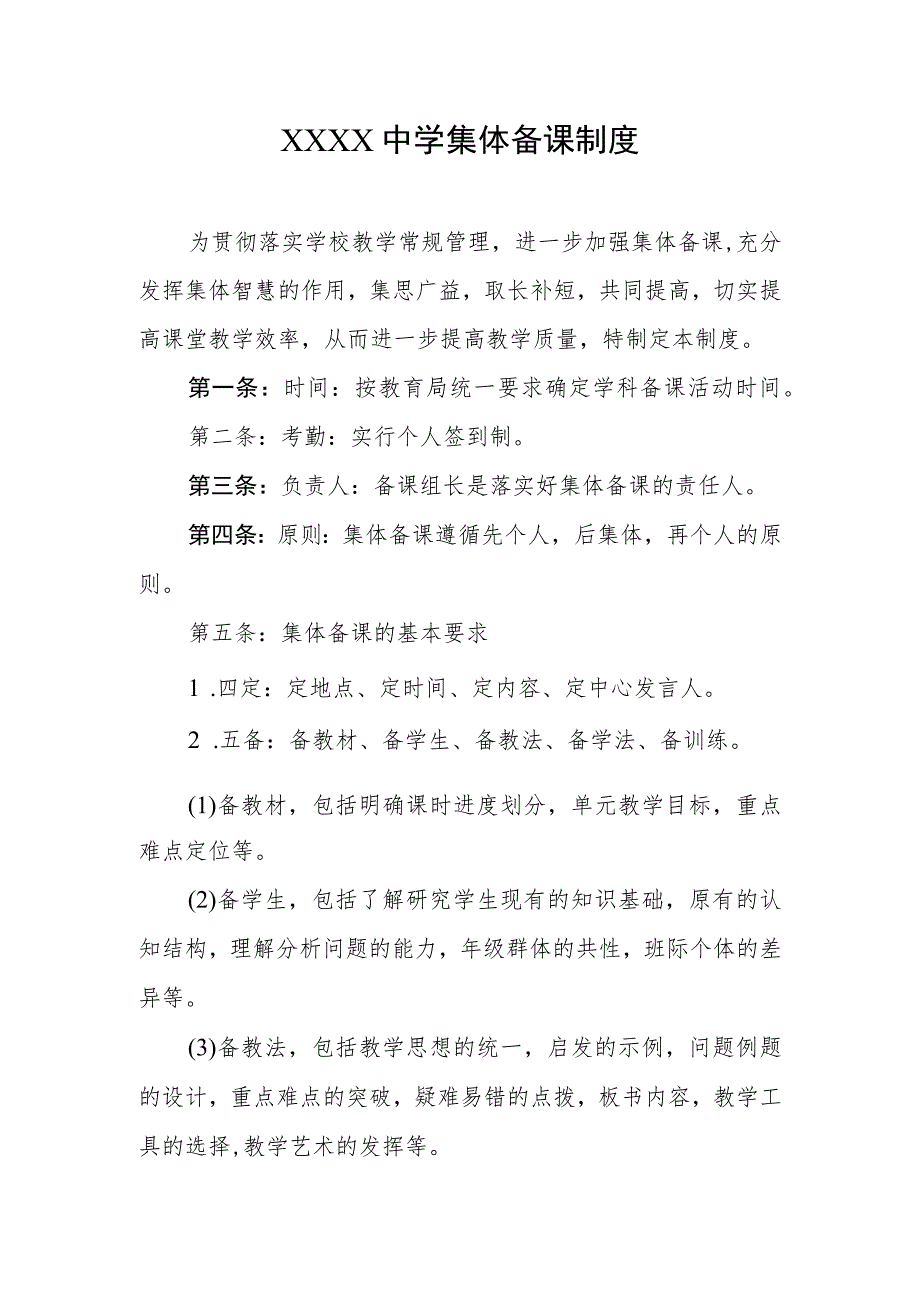 XXXX 中学集体备课制度
为贯彻落实学校教学常规管理，进一步加强集体备课,充分
发挥集体智慧的作用，集思广益，取长补短，共同提高，切实提
高课堂教学效率，从而进一步提高教学质量，特制定本制度。
第一条：时间：按教育局统一要求确定学科备课活动时间。
第二条：考勤：实行个人签到制。
第三条：负责人：备课组长是落实好集体备课的责任人。
第四条：原则：集体备课遵循先个人，后集体，再个人的原
则。
第五条：集体备课的基本要求
1 .四定：定地点、定时间、定内容、定中心发言人。
2 .五备：备教材、备学生、备教法、备学法、备训练。
(1)备教材，包括明确课时进度划分，单元教学目标，重点
难点定位等。
(2)备学生，包括了解研究学生现有的知识基础，原有的认
知结构，理解分析问题的能力，年级群体的共性，班际个体的差
异等。
(3)备教法，包括教学思想的统一，启发的示例，问题例题
的设计，重点难点的突破，疑难易错的点拨，板书内容，教学工
具的选择,教学艺术的发挥等。